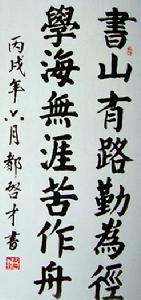 書山有路勤為徑
學海無涯苦作舟
丙戌年六月都啓才書